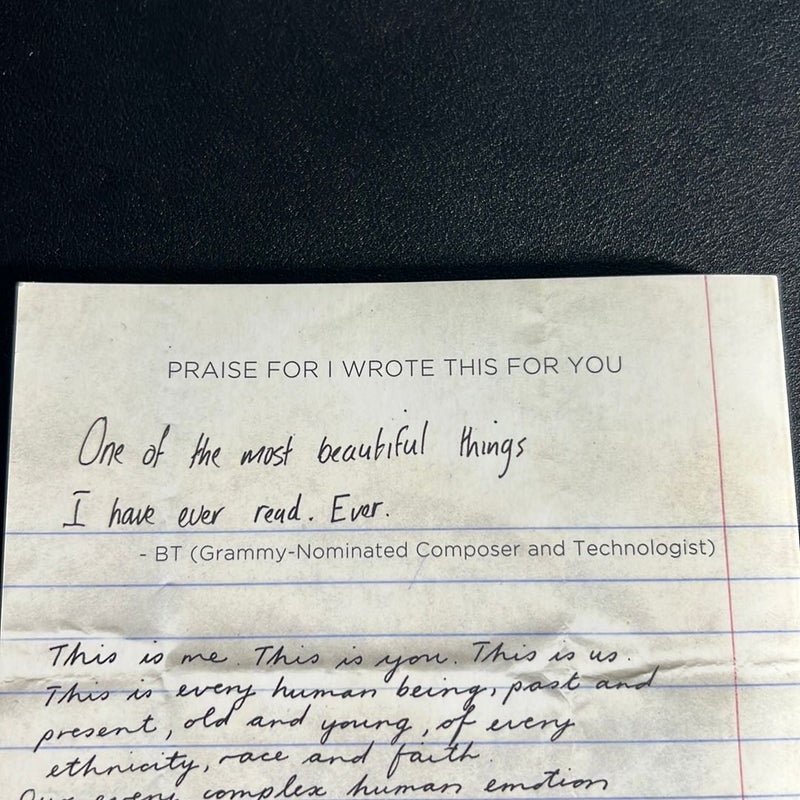 PRAISE FOR I WROTE THIS FOR YOU
One of the most beautiful things
I have ever read. Ever.
- BT (Grammy-Nominated Composer and Technologist)
This is me. This is you. This is us.
This is every human being, past and
present, old and young, of every
ethnicity, race and faith.
Our every complex human emotion